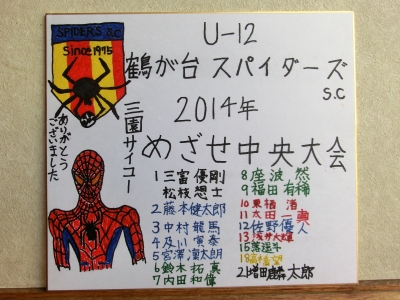 SPIDERS S.C
Since 1975
U-12
鶴が台スパイダーズ
S.C
2014年
めざせ中央大会
三園サイコー
ありがとう
ございました
1 三富 優剛
松枝 想士
2 藤本健太郎
3 中村 龍馬
4 及川 寅泰
5 宮澤 凛太朗
6 鈴木 拓真
7 内田 和偉
8 座波 然
9 福田 有稀
10 栗栖 渚
11 太田 一典
12 佐野 優人
13 浅井 大輝
15 落遼斗
18 高
21 増田 麟太郎